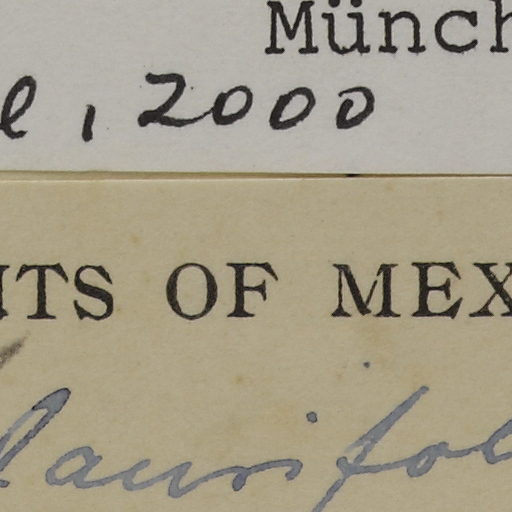 Münch
l, 2000
NTS OF MEX
laurifol